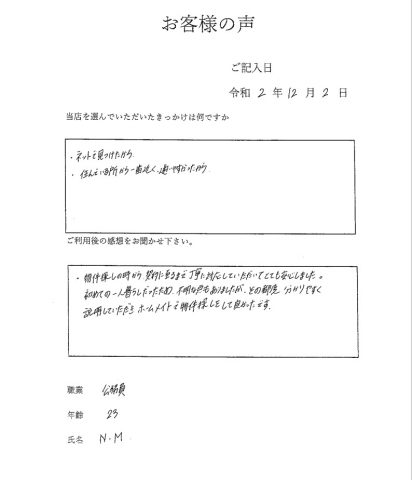 お客様の声
ご記入日
令和 2 年 12 月 2 日
当店を選んでいただいたきっかけは何ですか
・ネットで見つけたから
・住んでいる所から一番近く、通いやすかったから
ご利用後の感想をお聞かせ下さい。
・物件探しの時から契約に至るまで丁寧に対応していただいてとても安心しました。
初めての一人暮らしだったため、不明な点もありましたが、その都度分かりやすく
説明していただき ホームメイトで物件探しをして良かったです。
職業 公務員
年齢 23
氏名 N.M